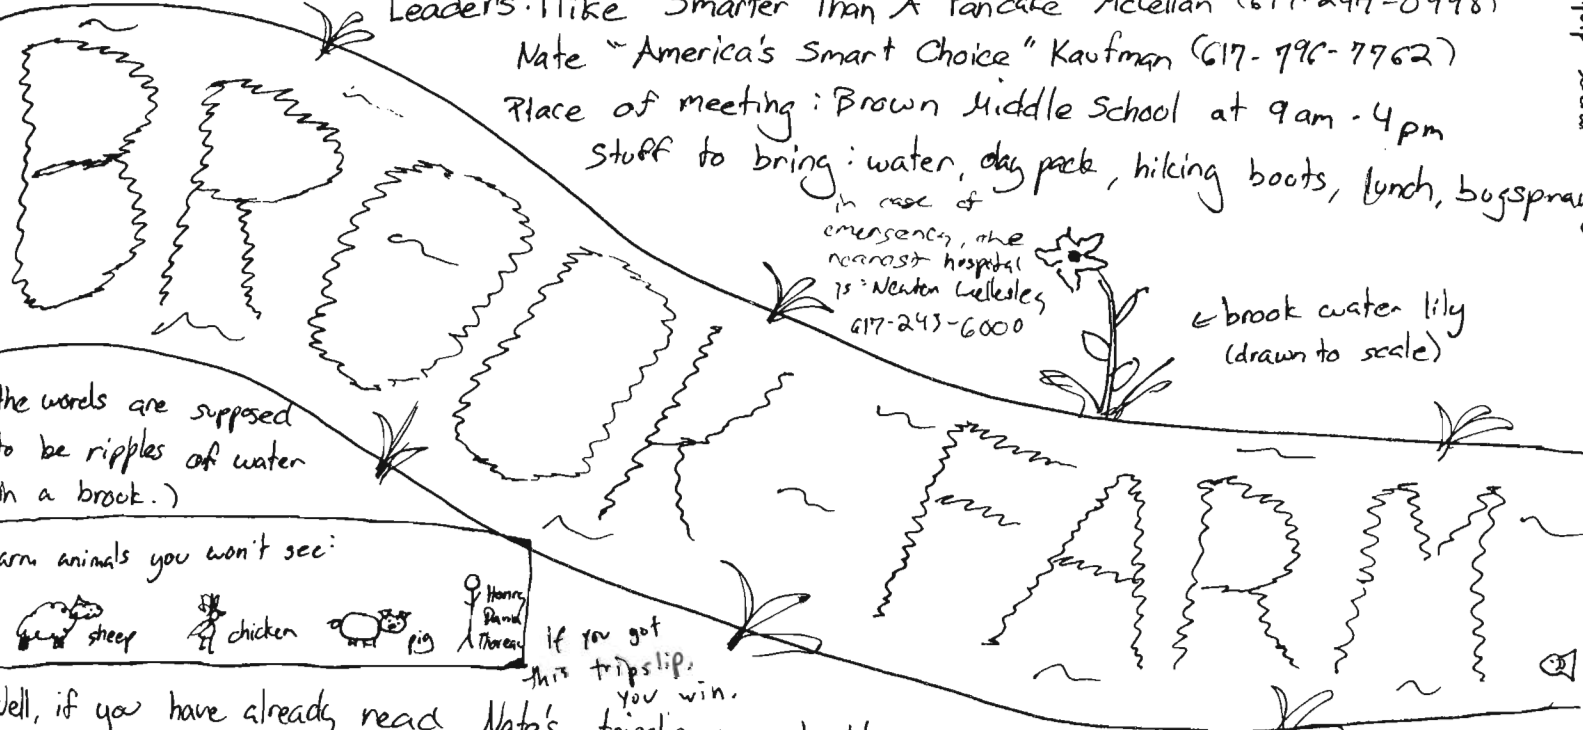 Leaders: Mike "Smarter Than A Pancake" McLellan (617-244-0998)
Nate "America's Smart Choice" Kaufman (617-796-7762)
Place of meeting: Brown Middle School at 9am - 4pm
Stuff to bring: water, day pack, hiking boots, lunch, bugspray
in case of
emergency, the
nearest hospital
is: Newton Wellesley
617-243-6000
←brook water lily
(drawn to scale)
BROOK FARM
the words are supposed
to be ripples of water
in a brook.)
arm animals you won't see:
sheep
chicken
pig
Henry
David
Thoreau
if you got
this tripslip,
you win.
Well, if you have already read Nate's